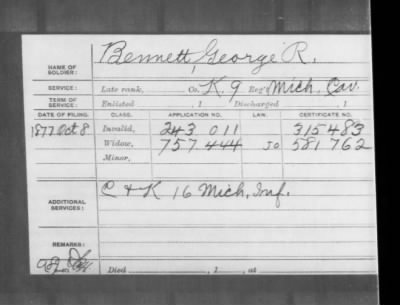 NAME OF SOLDIER: Bennett, George R.
SERVICE: Late rank, Co. K, 9 Reg't Mich. Cav.
TERM OF SERVICE: Enlisted , 1 Discharged , 1
DATE OF FILING. CLASS. APPLICATION NO. LAW. CERTIFICATE NO.
1877 Oct 8 Invalid, 243 011 315483
Widow, 757 444 581762
Minor,
ADDITIONAL SERVICES: C + K 16 Mich. Inf.
REMARKS:
Died , 1 , at